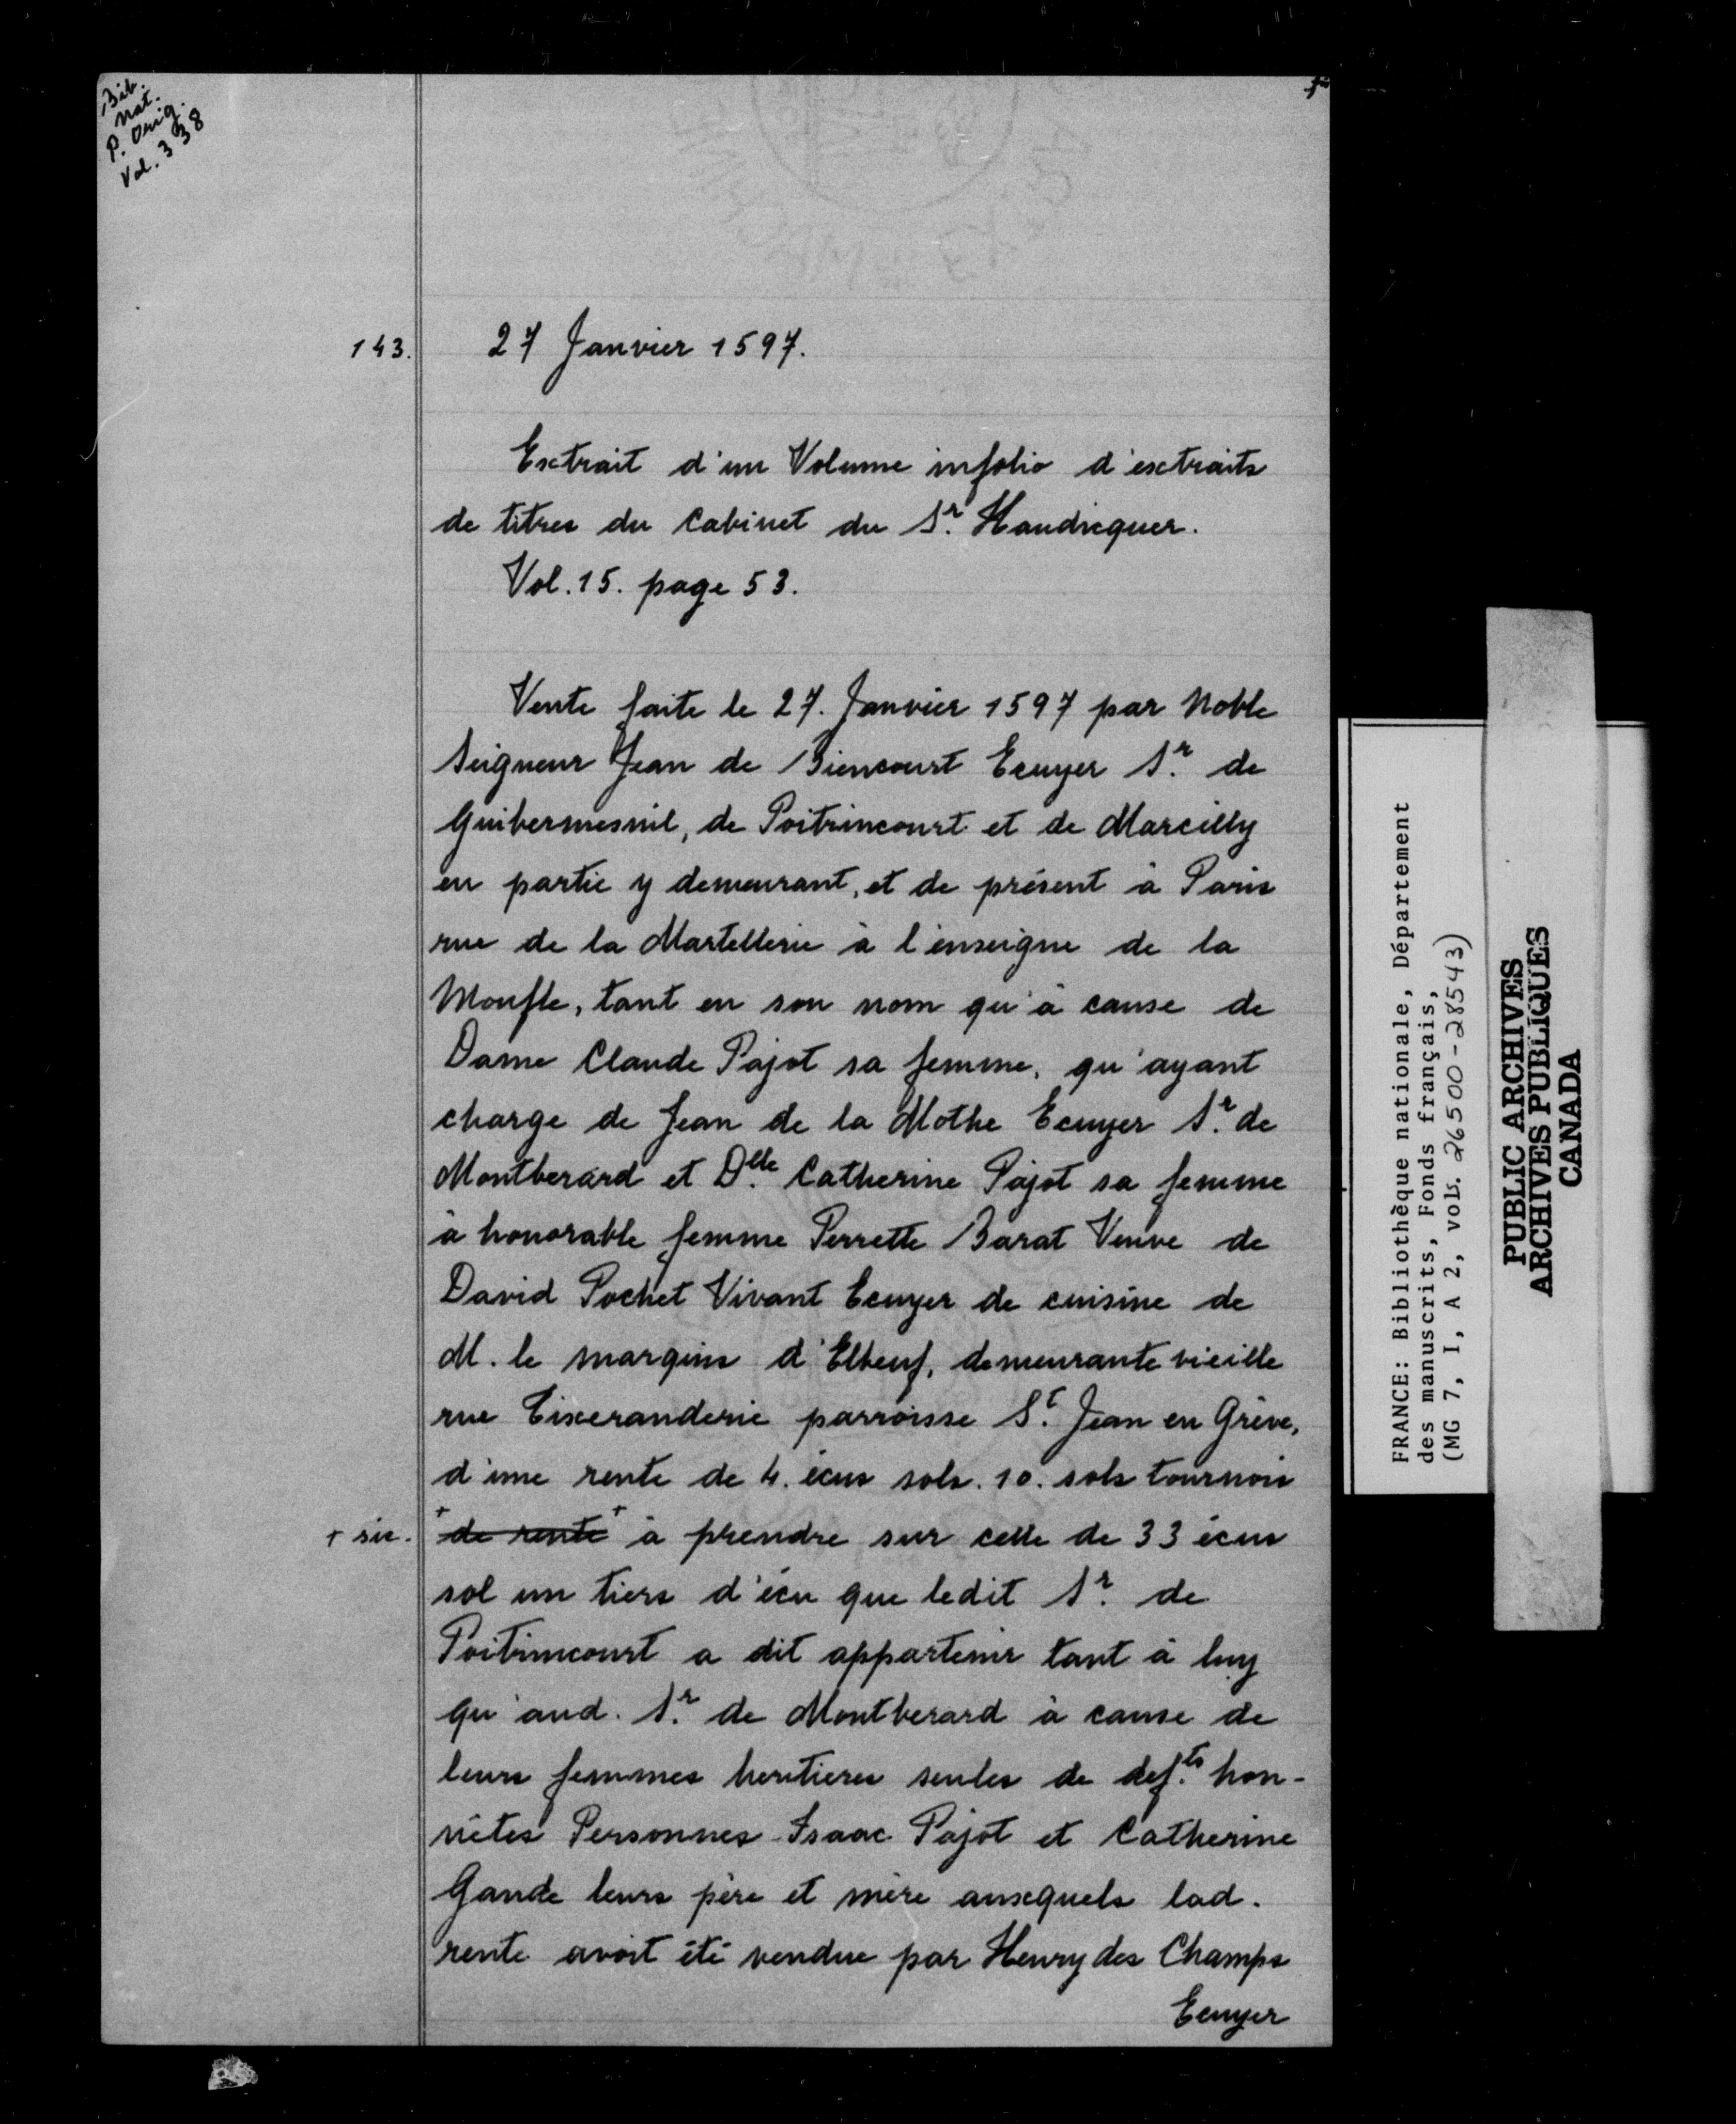 Bib.
Nat.
P. Orig.
Vol. 338
143.
27 Janvier 1597.
Extrait d'un Volume infolio d'extraits
de titres du Cabinet du Sr. Haudicquer.
Vol. 15. page 53.
Vente faite le 27. Janvier 1597 par Noble
Seigneur Jean de Biencourt Ecuyer Sr. de
Guibermesnil, de Poitrincourt et de Marcilly
en partie y demeurant, et de présent à Paris
rue de la Martellerie à l'enseigne de la
Moufle, tant en son nom qu'à cause de
Dame Claude Pajot sa femme, qu'ayant
charge de Jean de la Mothe Ecuyer Sr. de
Montberard et Dlle. Catherine Pajot sa femme
à honorable femme Perrette Barat Veuve de
David Pochet Vivant Ecuyer de cuisine de
M. le marquis d'Elbeuf, demeurante vieille
rue Tixeranderie parroisse St. Jean en Grève,
d'une rente de 4. écus sols. 10. sols tournois
+ sic.
+de rente+ à prendre sur celle de 33 écus
sol un tiers d'écu que ledit Sr. de
Poitrincourt a dit appartenir tant à luy
qu'aud. Sr. de Montberard à cause de
leurs femmes heritieres seules de defts. hon-
nêtes Personnes Isaac Pajot et Catherine
Gande leurs père et mère auxquels lad.
rente avoit été vendue par Henry des Champs
Ecuyer
FRANCE: Bibliothèque nationale, Département
des manuscrits, Fonds français,
(MG 7, I, A 2, vols. 26500-28543)
PUBLIC ARCHIVES
ARCHIVES PUBLIQUES
CANADA